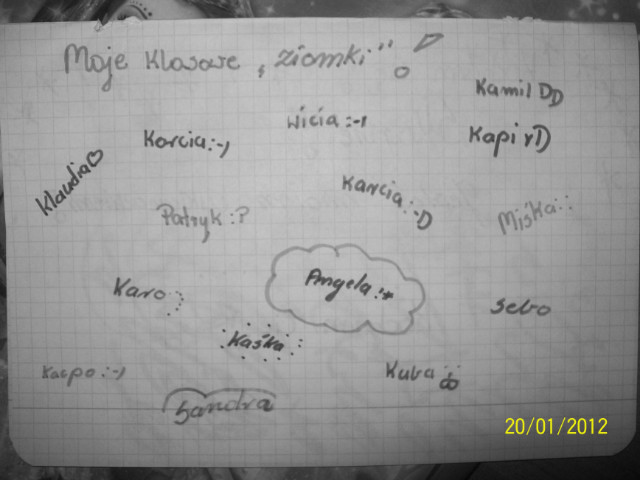 Moje klasowe „ziomki"!
Kamil DD
Wicia :-)
Korcia :-)
Kapi xD
Klaudia
Karcia :-D
Patryk :?
Miśka ::
Angela :*
Karo :)
Sebo
Kaśka
Kacpo :-)
Kuba
Sandra
20/01/2012